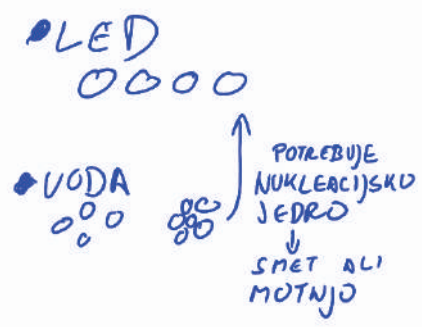 LED
VODA
POTREBUJE
NUKLEACIJSKO
JEDRO
SMET ALI
MOTNJO